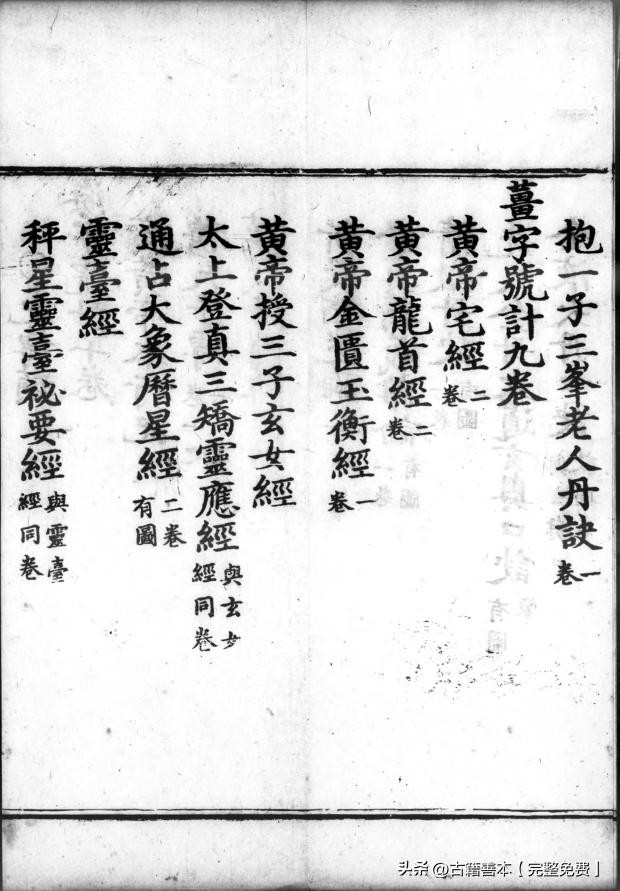 抱一子三峯老人丹訣一卷
薑字號計九卷
黃帝宅經二卷
黃帝龍首經二卷
黃帝金匱玉衡經一卷
黃帝授三子玄女經
太上登真三矯靈應經與玄女經同卷
通占大象曆星經二卷有圖
靈臺經
秤星靈臺祕要經與靈臺經同卷
头条@古籍善本【完整免费】